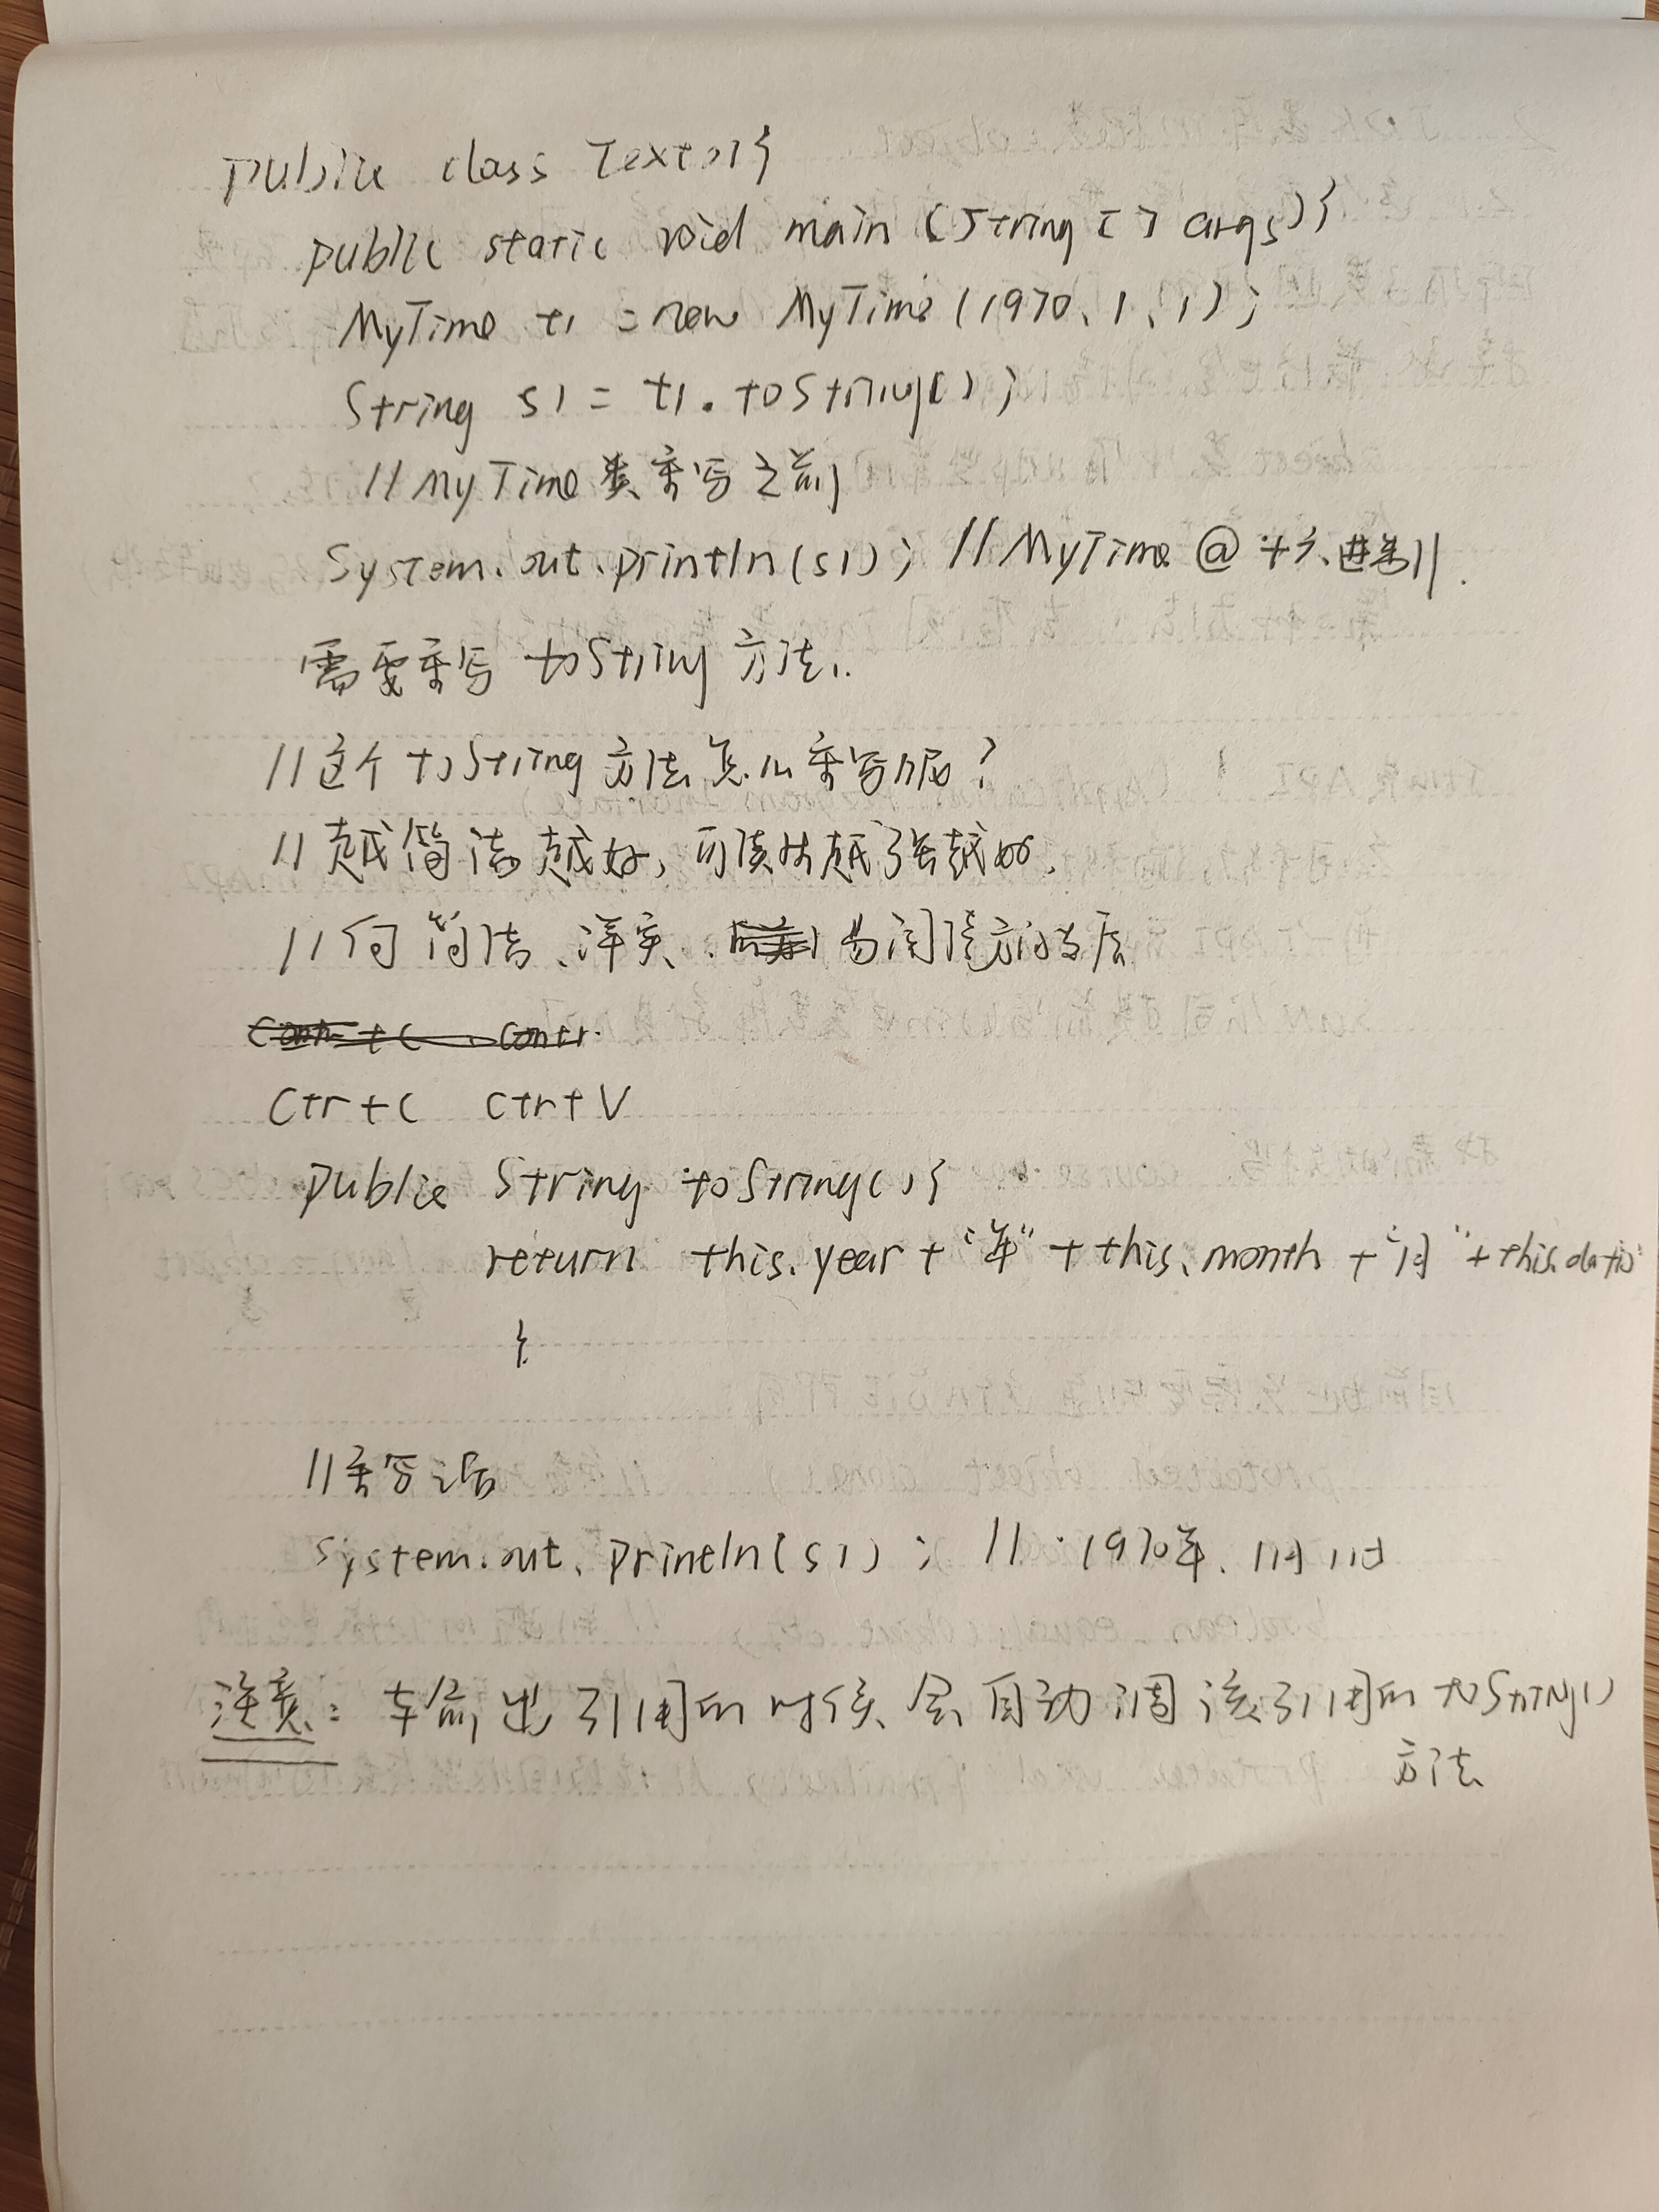 public class Text01{
public static void main (String [] args){
MyTime t1 = new MyTime (1970、1、1);
String s1 = t1.toString();
//MyTime类重写之前
System.out.println(s1); //MyTime @ 十六进制
需要重写 toString 方法.
//这个 toString 方法怎么重写呢?
//越简洁越好, 可读性越强越好.
//向简洁、详实、易阅读方向发展
Ctr+C Ctr+V
public String toString(){
return this.year+"年"+this.month+"月"+this.
}
//重写之后
System.out.println(s1); //1970年.1月1日
注意: 输出引用的时候会自动调该引用的toString()
方法